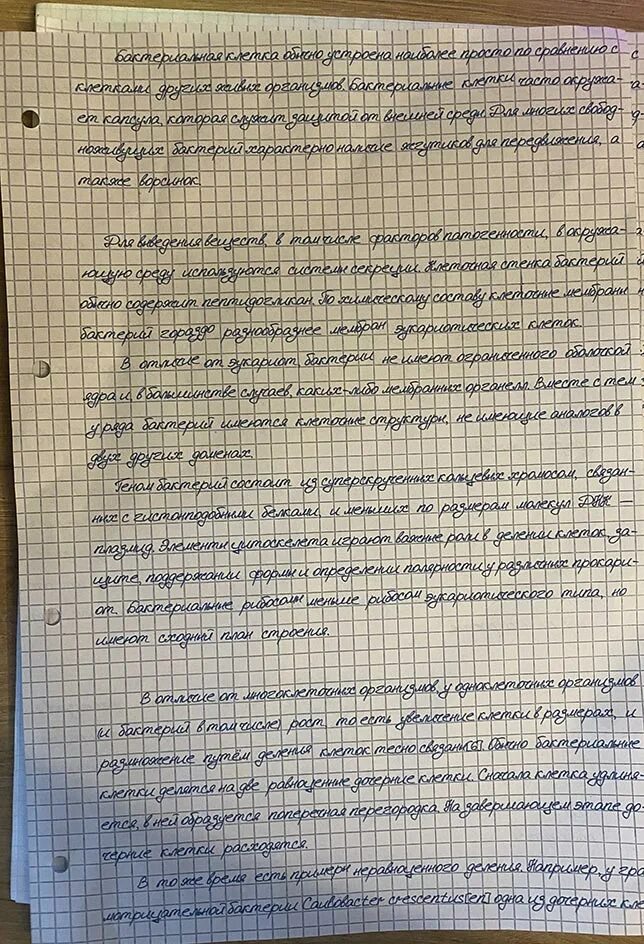 Бактериальная клетка обычно устроена наиболее просто по сравнению с
клетками других живых организмов. Бактериальные клетки часто окружа-
ет капсула, которая служит защитой от внешней среды. Для многих свобод-
ноживущих бактерий характерно наличие жгутиков для передвижения, а
также ворсинок.
Для выведения веществ, в том числе факторов патогенности, в окружа-
ющую среду используются системы секреции. Клеточная стенка бактерий
обычно содержит пептидогликан. По химическому составу клеточные мембраны
бактерий гораздо разнообразнее мембран эукариотических клеток.
В отличие от эукариот, бактерии не имеют ограниченного оболочкой
ядра и, в большинстве случаев, каких-либо мембранных органелл. Вместе с тем
у ряда бактерий имеются клеточные структуры, не имеющие аналогов в
двух других доменах.
Геном бактерий состоит из суперскрученных кольцевых хромосом, связан-
ных с гистоноподобными белками, и меньших по размерам молекул ДНК —
плазмид. Элементы цитоскелета играют важные роли в делении клеток, за-
щите, поддержании формы и определении полярности у различных прокари-
от. Бактериальные рибосомы меньше рибосом эукариотического типа, но
имеют сходный план строения.
В отличие от многоклеточных организмов, у одноклеточных организмов
(и бактерий в том числе) рост, то есть увеличение клетки в размерах, и
размножение путём деления клеток тесно связаны[6]. Обычно бактериальные
клетки делятся на две равноценные дочерние клетки. Сначала клетка удлиня-
ется, в ней образуется поперечная перегородка. На завершающем этапе до-
черние клетки расходятся.
В то же время есть примеры неравноценного деления. Например, у гра
мотрицательной бактерии Caulobacter crescentus[en] одна из дочерних кле